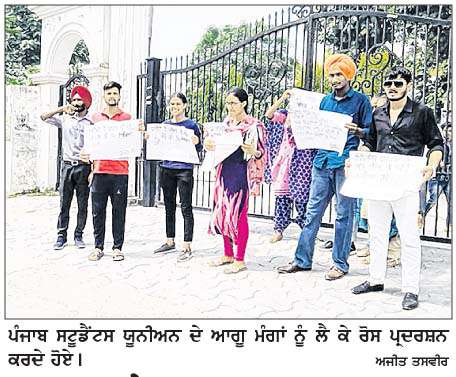 ਪੰਜਾਬ ਸਟੂਡੈਂਟਸ ਯੂਨੀਅਨ ਦੇ ਆਗੂ ਮੰਗਾਂ ਨੂੰ ਲੈ ਕੇ ਰੋਸ ਪ੍ਰਦਰਸ਼ਨ
ਕਰਦੇ ਹੋਏ। ਅਜੀਤ ਤਸਵੀਰ